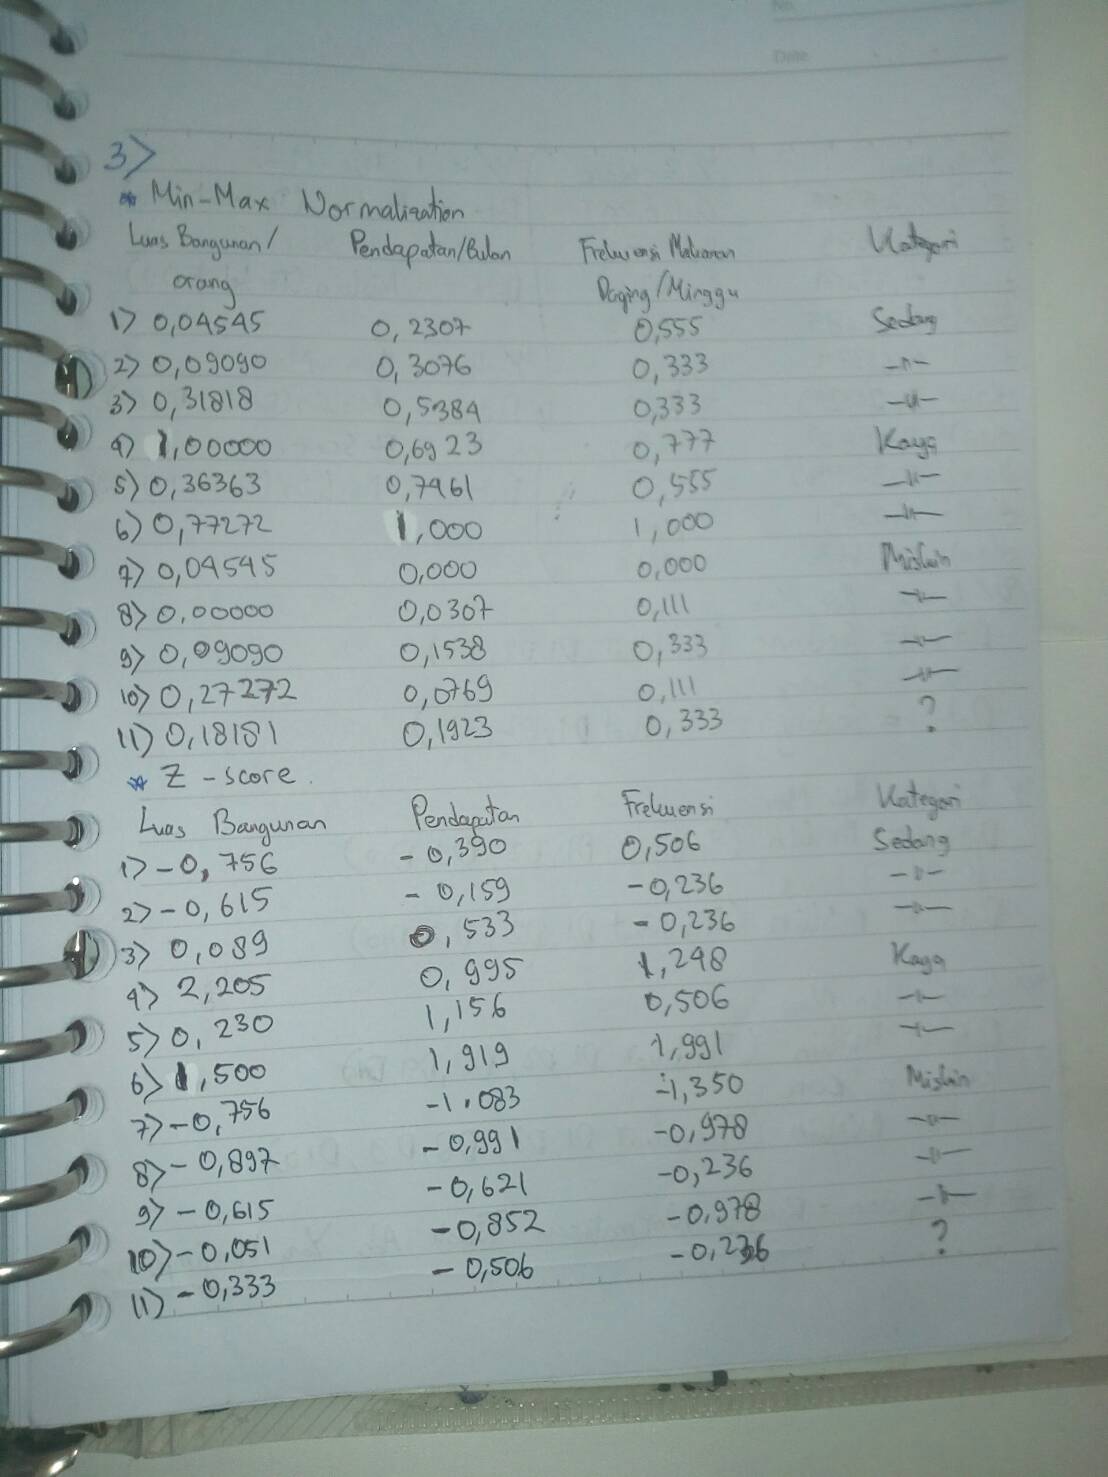 No.
Date
3>
* Min-Max Normalization
Luas Bangunan/ Pendapatan/Bulan Frekuensi Makanan Kategori
orang Daging/Minggu
1> 0,04545 0,2307 0,555 Sedang
2> 0,09090 0,3076 0,333 -〃-
3> 0,31818 0,5384 0,333 -〃-
4> 1,00000 0,6923 0,777 Kaya
5> 0,36363 0,7461 0,555 -〃-
6> 0,77272 1,000 1,000 -〃-
7> 0,04545 0,000 0,000 Miskin
8> 0,00000 0,0307 0,111 -〃-
9> 0,09090 0,1538 0,333 -〃-
10> 0,27272 0,0769 0,111 -〃-
11> 0,18181 0,1923 0,333 ?
* Z-score.
Luas Bangunan Pendapatan Frekuensi Kategori
1> -0,756 -0,390 0,506 Sedang
2> -0,615 -0,159 -0,236 -〃-
3> 0,089 0,533 -0,236 -〃-
4> 2,205 0,995 1,248 Kaya
5> 0,230 1,156 0,506 -〃-
6> 1,500 1,919 1,991 -〃-
7> -0,756 -1.083 -1,350 Miskin
8> -0,897 -0,991 -0,978 -〃-
9> -0,615 -0,621 -0,236 -〃-
10> -0,051 -0,852 -0,978 -〃-
11> -0,333 -0,506 -0,236 ?